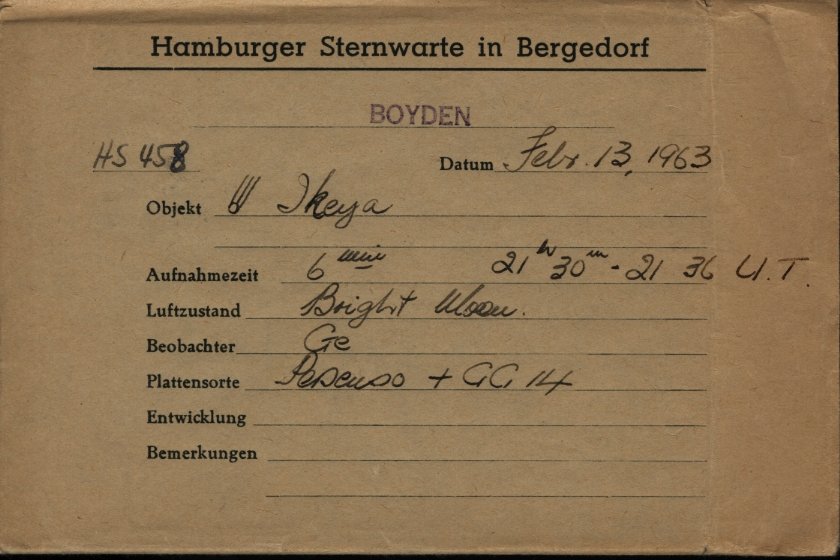 Hamburger Sternwarte in Bergedorf
BOYDEN
HS 458 Datum Febr. 13, 1963
Objekt Ikeya
Aufnahmezeit 6 min 21h 30m - 21 36 U.T.
Luftzustand Bright Moon.
Beobachter Ge
Plattensorte + GG 14
Entwicklung
Bemerkungen